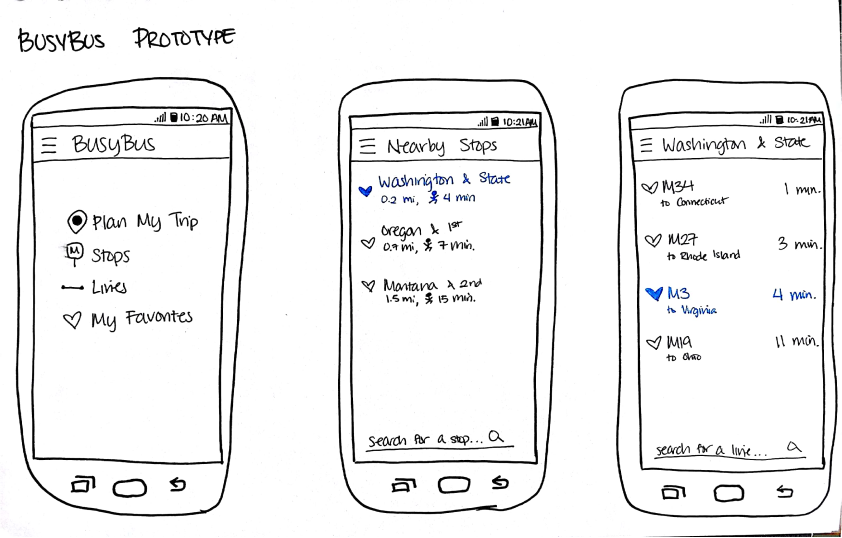 BUSYBUS PROTOTYPE
10:20 AM
BUSYBUS
Plan My Trip
M Stops
Lines
My Favorites
10:21AM
Nearby Stops
Washington & State
0.2 mi, 4 min
Oregon & 1st
0.7 mi, 7 min.
Montana & 2nd
1.5 mi, 15 min.
search for a stop...
10:21AM
Washington & State
M34 1 min.
to Connecticut
M27 3 min.
to Rhode Island
M3 4 min.
to Virginia
M19 11 min.
to Ohio
search for a line...